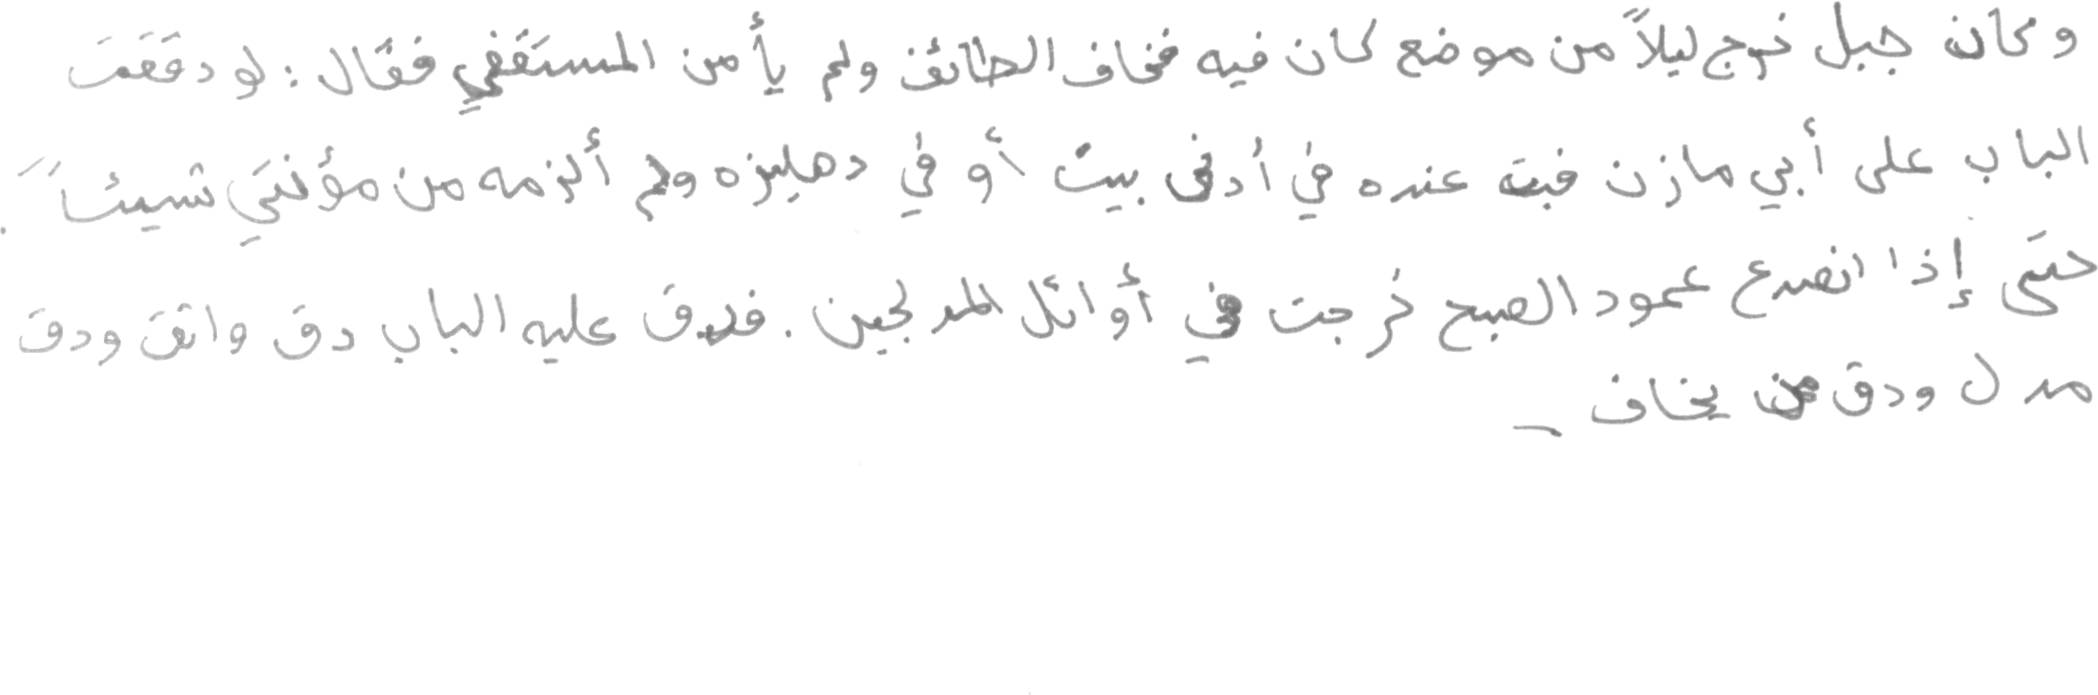 وكان جبل خرج ليلاً من موضع كان فيه فخاف الطائف ولم يأمن المستقفي فقال : لو دققت
الباب على أبي مازن فبت عنده في أدنى بيت أو في دهليزه ولم ألزمه من مؤنتي شيئاً .
حتى إذا انصدع عمود الصبح خرجت في أوائل المدلجين . فدق عليه الباب دق واثق ودق
مدل ودق من يخاف _